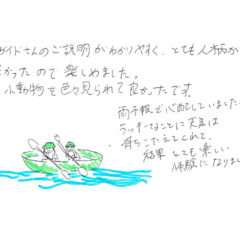 ガイドさんのご説明がわかりやすく、とても人柄が
かったので楽しめました。
小動物を色々見られて良かったです。
雨予報で心配していました
ラッキーなことに天気は
持ちこたえてくれて、
結果とても楽しい
体験になりまし